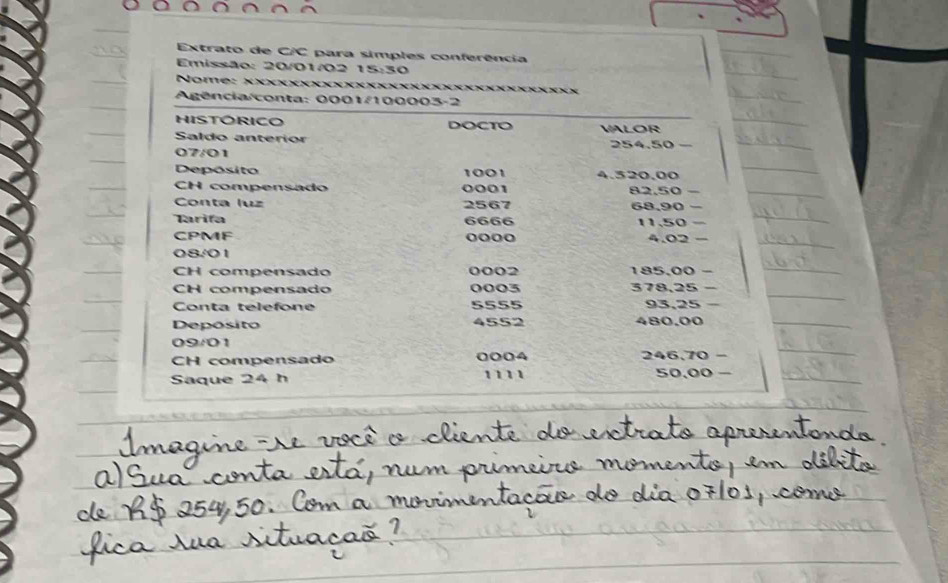 Extrato de C/C para simples conferência
Emissão: 20/01/02 15:30
Nome: xxxxxxxxxxxxxxxxxxxxxxxxxxxxxxx
Agência/conta: 0001/100003-2
HISTÓRICO DOCTO VALOR
Saldo anterior 254,50 –
07/01
Depósito 1001 4.320,00
CH compensado 0001 82,50 –
Conta luz 2567 68,90 –
Tarifa 6666 11,50 –
CPMF 0000 4,02 –
08/01
CH compensado 0002 185,00 –
CH compensado 0003 378,25 –
Conta telefone 5555 93,25 –
Depósito 4552 480,00
09/01
CH compensado 0004 246,70 –
Saque 24 h 1111 50,00 –
Imagine-se você o cliente do extrato apresentondo.
a) Sua conta está, num primeiro momento, em débito
de R$ 254,50. Com a movimentação do dia 07/01, como
fica sua situação?